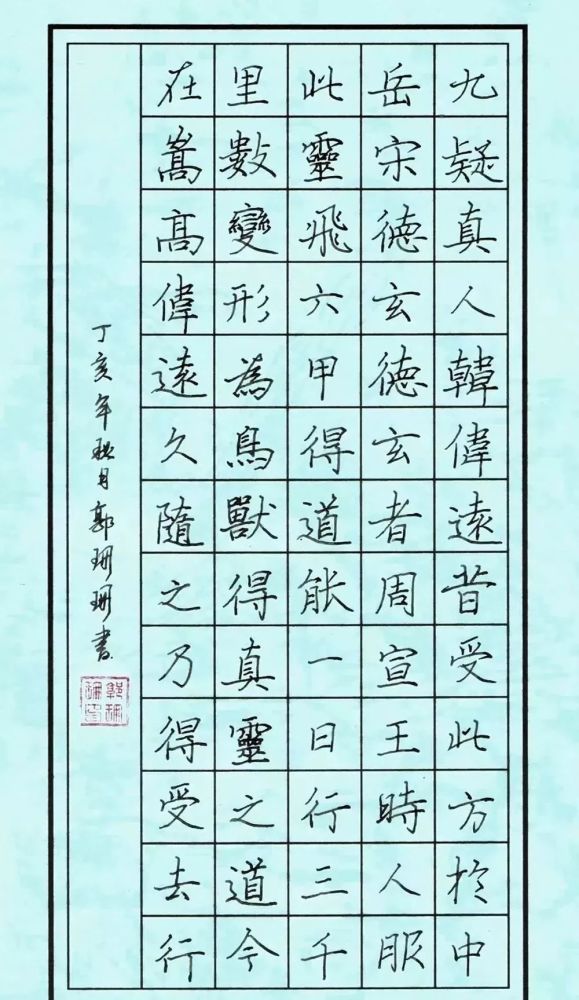 九疑真人韓偉遠昔受此方於中
岳宋德玄德玄者周宣王時人服
此靈飛六甲得道能一日行三千
里數變形為鳥獸得真靈之道今
在嵩高偉遠久隨之乃得受去行
丁亥年秋月郭珊珊書